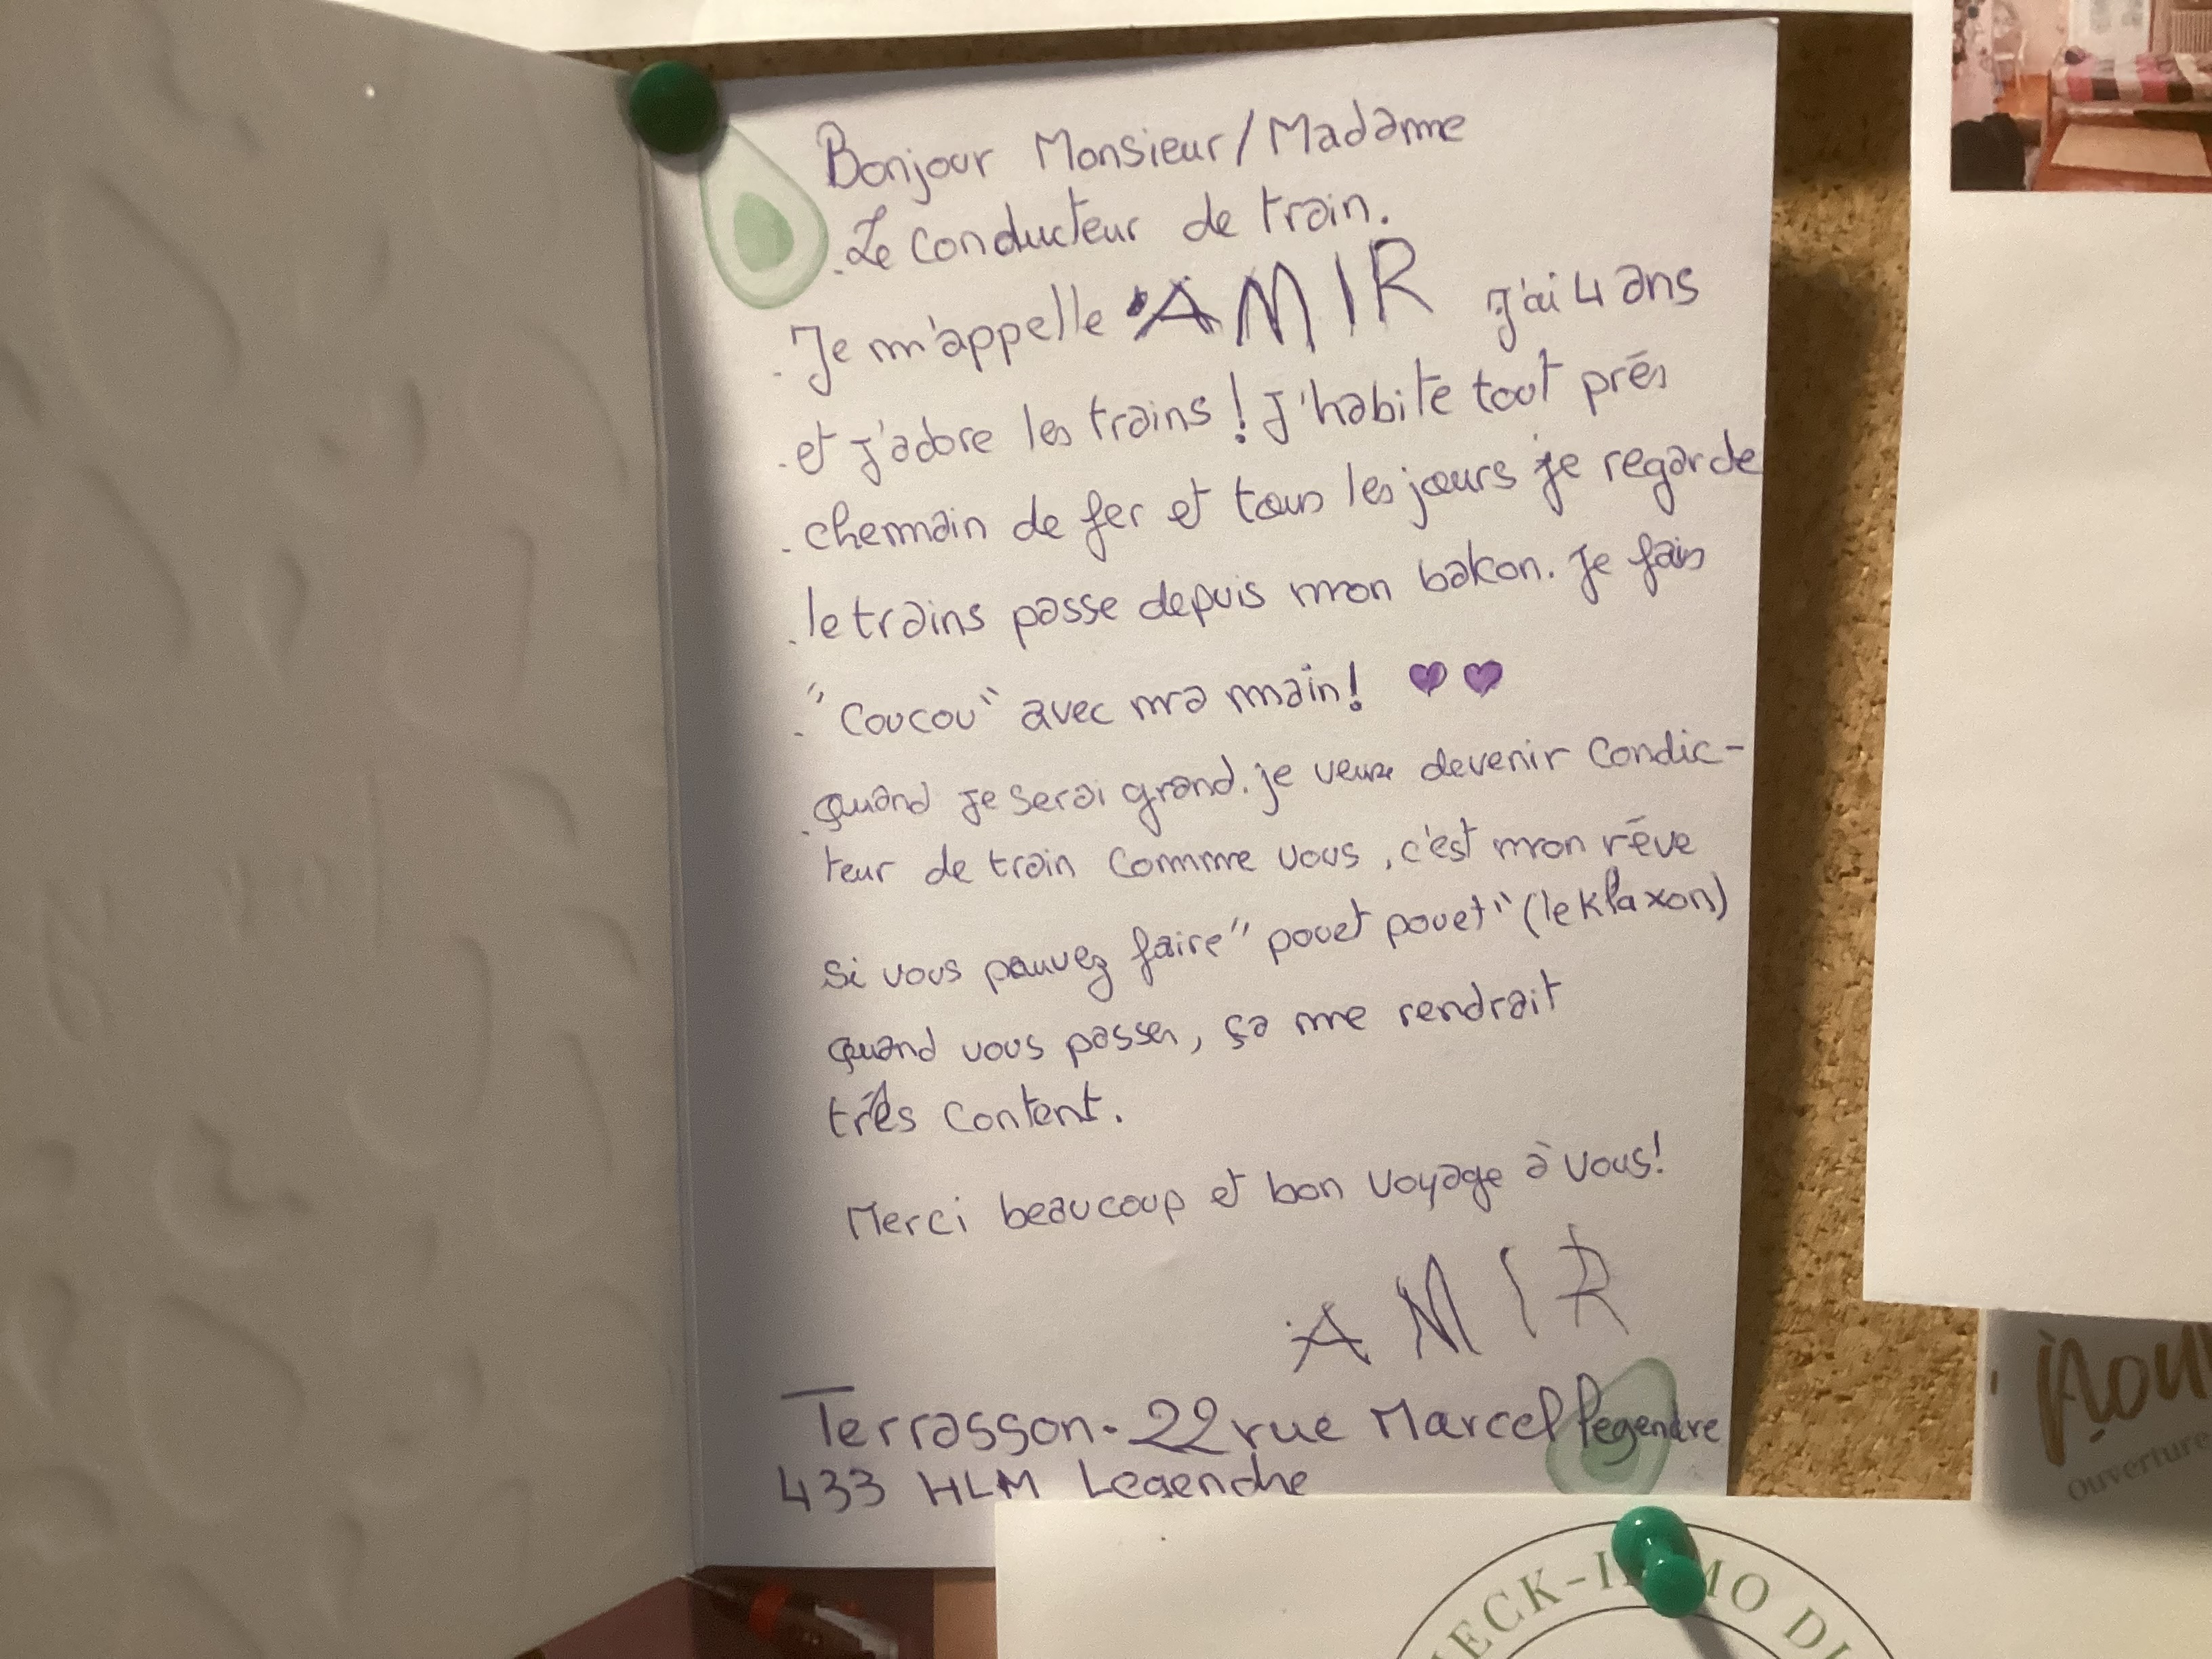 Bonjour Monsieur/Madame
.Le conducteur de train.
.Je m'appelle AMIR J'ai 4 ans
.et j'adore les trains ! J'habite tout près
.chemain de fer et tous les jours je regarde
.le trains passe depuis mon balcon. Je fais
."Coucou" avec ma main! 💜💜
.quand je serai grand. je veux devenir Condic-
teur de train comme vous, c'est mon rêve
si vous pouvez faire "pouet pouet" (le Klaxon)
quand vous passer, ça me rendrait
très content.
Merci beaucoup et bon voyage à vous!
AMIR
Terrasson. 22 rue Marcel legendre
433 HLM Legendre
Nou
Ouverture
ECK-IMMO DI